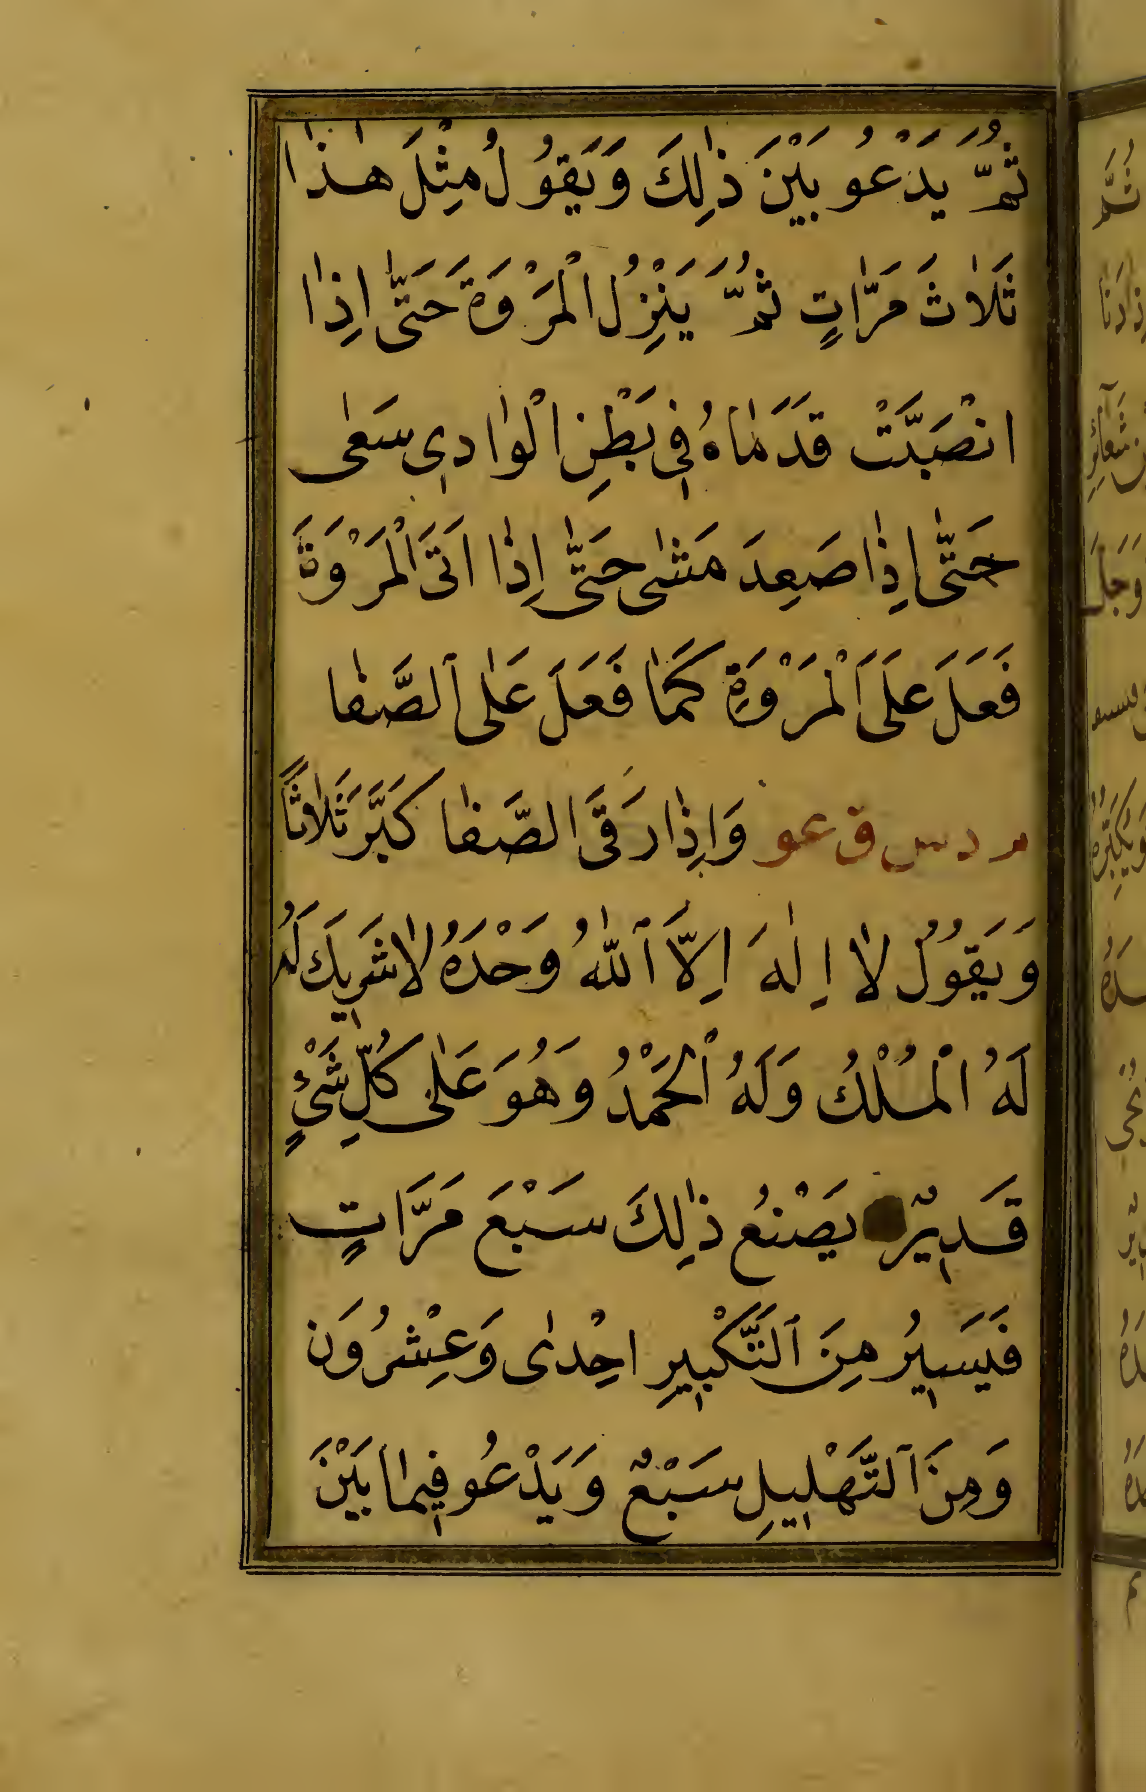 ثُمَّ يَدْعُو بَيْنَ ذٰلِكَ وَيَقُولُ مِثْلَ هٰذَا
ثَلَاثَ مَرَّاتٍ ثُمَّ يَنْزِلُ الْمَرْوَةَ حَتّٰى اِذَا
انْصَبَّتْ قَدَمَاهُ فِي بَطْنِ الْوَادِي سَعٰى
حَتّٰى اِذَا صَعِدَ مَشٰى حَتّٰى اِذَا اَتَى الْمَرْوَةَ
فَعَلَ عَلَى الْمَرْوَةِ كَمَا فَعَلَ عَلَى الصَّفَا
م د س ق عو وَاِذَا رَقَى الصَّفَا كَبَّرَ ثَلَاثًا
وَيَقُولُ لَا اِلٰهَ اِلَّا اللّٰهُ وَحْدَهُ لَا شَرِيكَ لَهُ
لَهُ الْمُلْكُ وَلَهُ الْحَمْدُ وَهُوَ عَلٰى كُلِّ شَيْءٍ
قَدِيرٌ يَصْنَعُ ذٰلِكَ سَبْعَ مَرَّاتٍ
فَيَسِيرُ مِنَ التَّكْبِيرِ اِحْدٰى وَعِشْرُونَ
وَمِنَ التَّهْلِيلِ سَبْعٌ وَيَدْعُو فِيمَا بَيْنَ